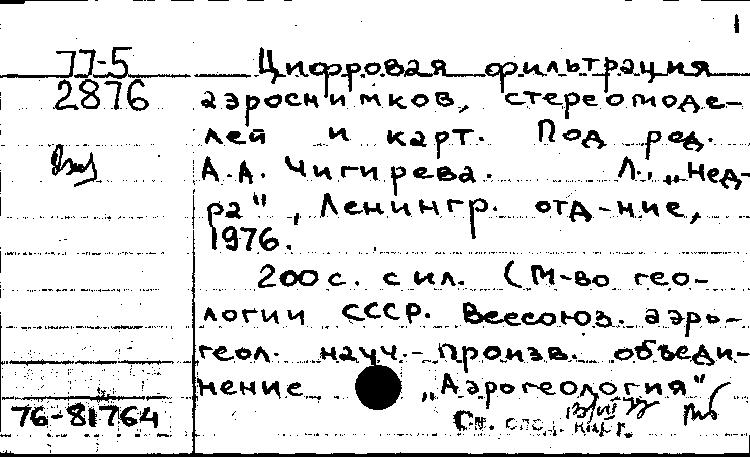 1
77-5
2876
Цифровая фильтрация
аэроснимков, стереомоде-
лей и карт. Под ред.
А.А. Чигирева. Л., „Нед-
ра", Ленингр. отд-ние,
1976.
200 с. с ил. (М-во гео-
логии СССР. Всесоюз. аэро-
геол. науч.-произв. объеди-
нение „Аэрогеология"
76-81764
См. след. карт.